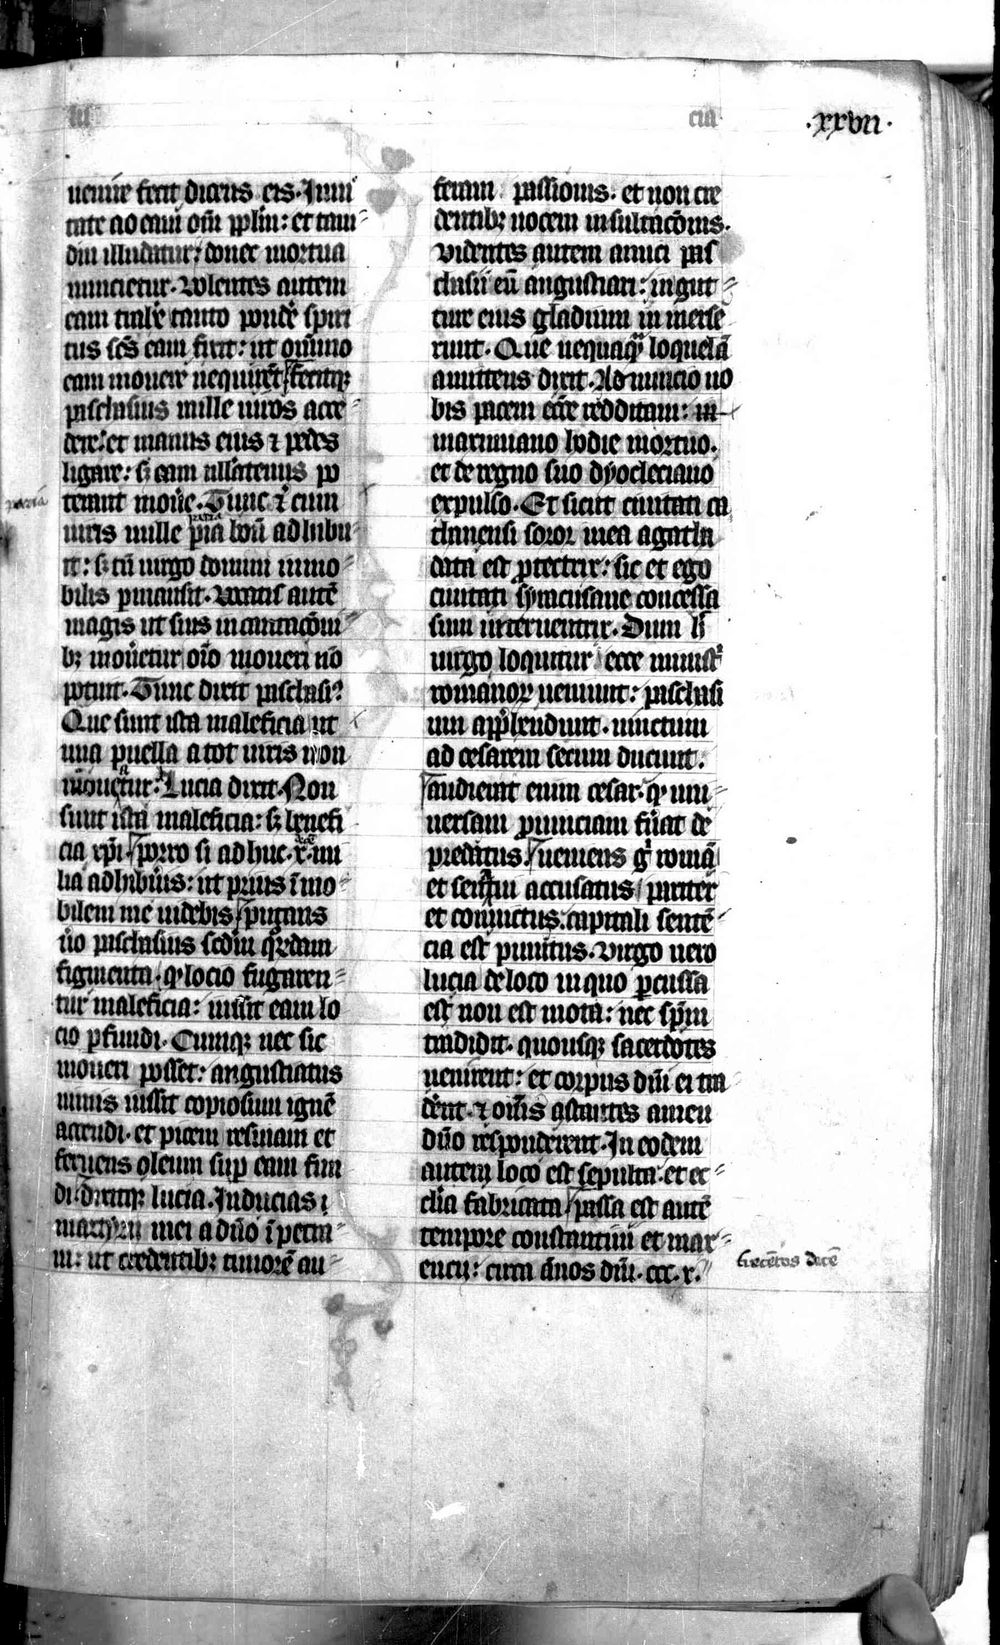 cia
·xxvii·
uenire fecit dicens eis. Inui
tate ad eam om̄ pplm̄: et tam
diu illudatur: donec mortua
nuncietur. Volentes autem
eam trahe᷒ tanto ponde᷒ spiri
tus sc̄s eam fixit: ut om̄ino
eam mouere nequirēt fecitqꝫ
paschasius mille uiros acce
dere: et manus eius ⁊ pedes
ligare: sꝫ eam nllatenus po
terant moue᷒. Tunc ⁊ cum
uiris mille pia boū adhibu
it: sꝫ tn̄ uirgo domini immo
bilis pmansit. Vocatis autē
magis ut suis incantacōni
bꝫ mouetur oīo moueri nō
potuit. Tunc dixit paschasi᷒
Que sunt ista maleficia ut
una puella a tot uiris non
mouetur. Lucia dixit. Non
sunt ista maleficia: sꝫ benefi
cia xpi. Porro si adhuc .x. mi
lia adhibueris: ut prius īmo
bilem me uidebis putans
u̇o paschasius scdm̄ quedam
figmenta. qꝫ locio fugaren
tur maleficia: iussit eam lo
cio pfundi. Cumqꝫ nec sic
moueri posset: angustiatus
nimis iussit copiosum ignē
accendi. et picem resinam et
feruens oleum sup eam fun
di. dixitqꝫ lucia. Inducias
martyrii mei a dn̄o īpetra
ui: ut credentibꝫ timorē au
feram passionis. et non cre
dentibꝫ uocem insultacōnis.
Videntes autem amici pas
chasii eū angustiari: in gut
ture eius gladium in merse
runt. Que nequaqꝫ loquelā
amittens dixit. Adnuncio uo
bis pacem ecc̄e redditam:
maximiano hodie mortuo.
et de regno suo dyocleciano
expulso. Et sicut ciuitati ca
thanensi soror mea agatha
data est protectrix: sic et ego
ciuitati syracusane concessa
sum interuentrix. Dum h̄
uirgo loquitur ecce minist᷒
romanoꝝ ueniunt: paschasi
um apphendunt. uinctum
ad cesarem secum ducunt.
audierat enim cesar. qꝫ uni
uersam prouinciam fu᷒at de
predatus. ueniens g᷒ romā
et senatui accusatus pariter
et conuictus: capitali sentē
cia est punitus. Virgo uero
lucia de loco in quo percussa
est non est mota: nec spm̄
tradidit. quousqꝫ sacerdotes
uenirent: et corpus dni ei tra
de᷒nt. ⁊ om̄s astantes amen
dn̄o responderent. In eodem
autem loco est sepulta. et ec
clia fabricata passa est autē
tempore constantini et max
encii: circa ānos dni. ccc. x.
trecētos decē